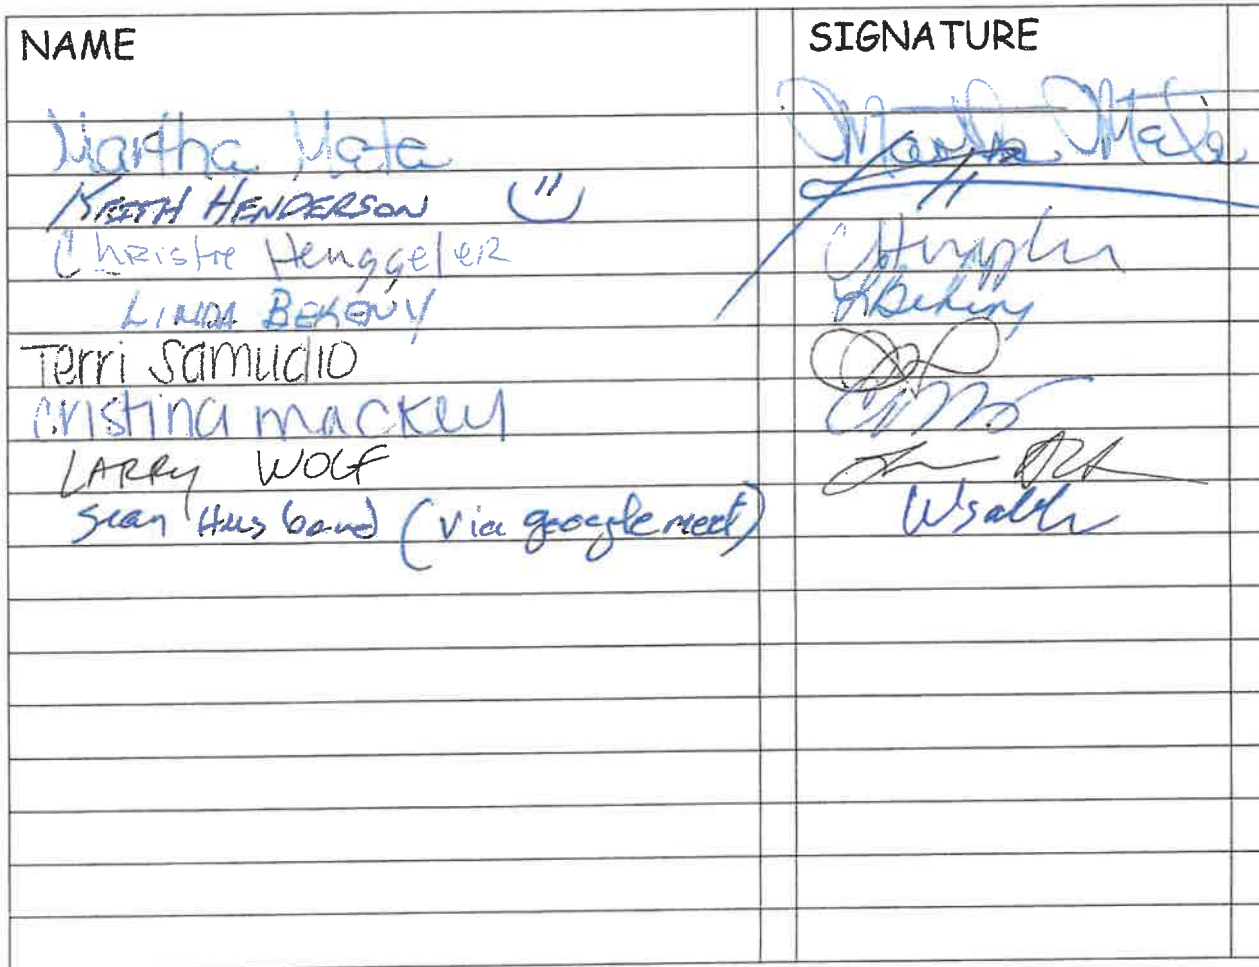 NAME SIGNATURE
Martha Mata Martha Mata
KEITH HENDERSON
Christie Henggeler CHenggeler
LINDA BEKENY LBekeny
Terri Samudio
cristina mackey
LARRY WOLF
Sean Husband (via google meet)